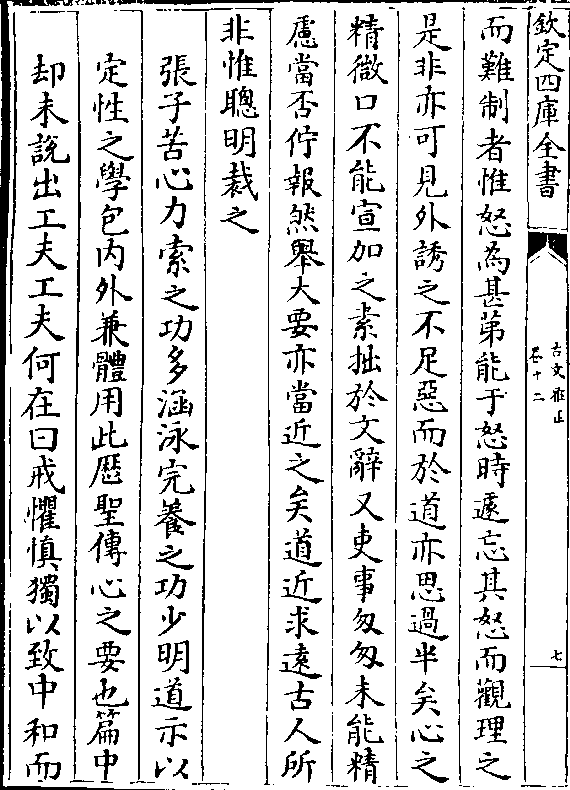 欽定四庫全書
古文雅正
卷十二
七
而難制者惟怒為甚第能于怒時遽忘其怒而觀理之
是非亦可見外誘之不足惡而於道亦思過半矣心之
精微口不能宣加之素拙於文辭又吏事匆匆未能精
慮當否佇報然舉大要亦當近之矣道近求遠古人所
非惟聰明裁之
張子苦心力索之功多涵泳完養之功少明道示以
定性之學包内外兼體用此歷聖傳心之要也篇中
却未說出工夫工夫何在曰戒懼慎獨以致中和而